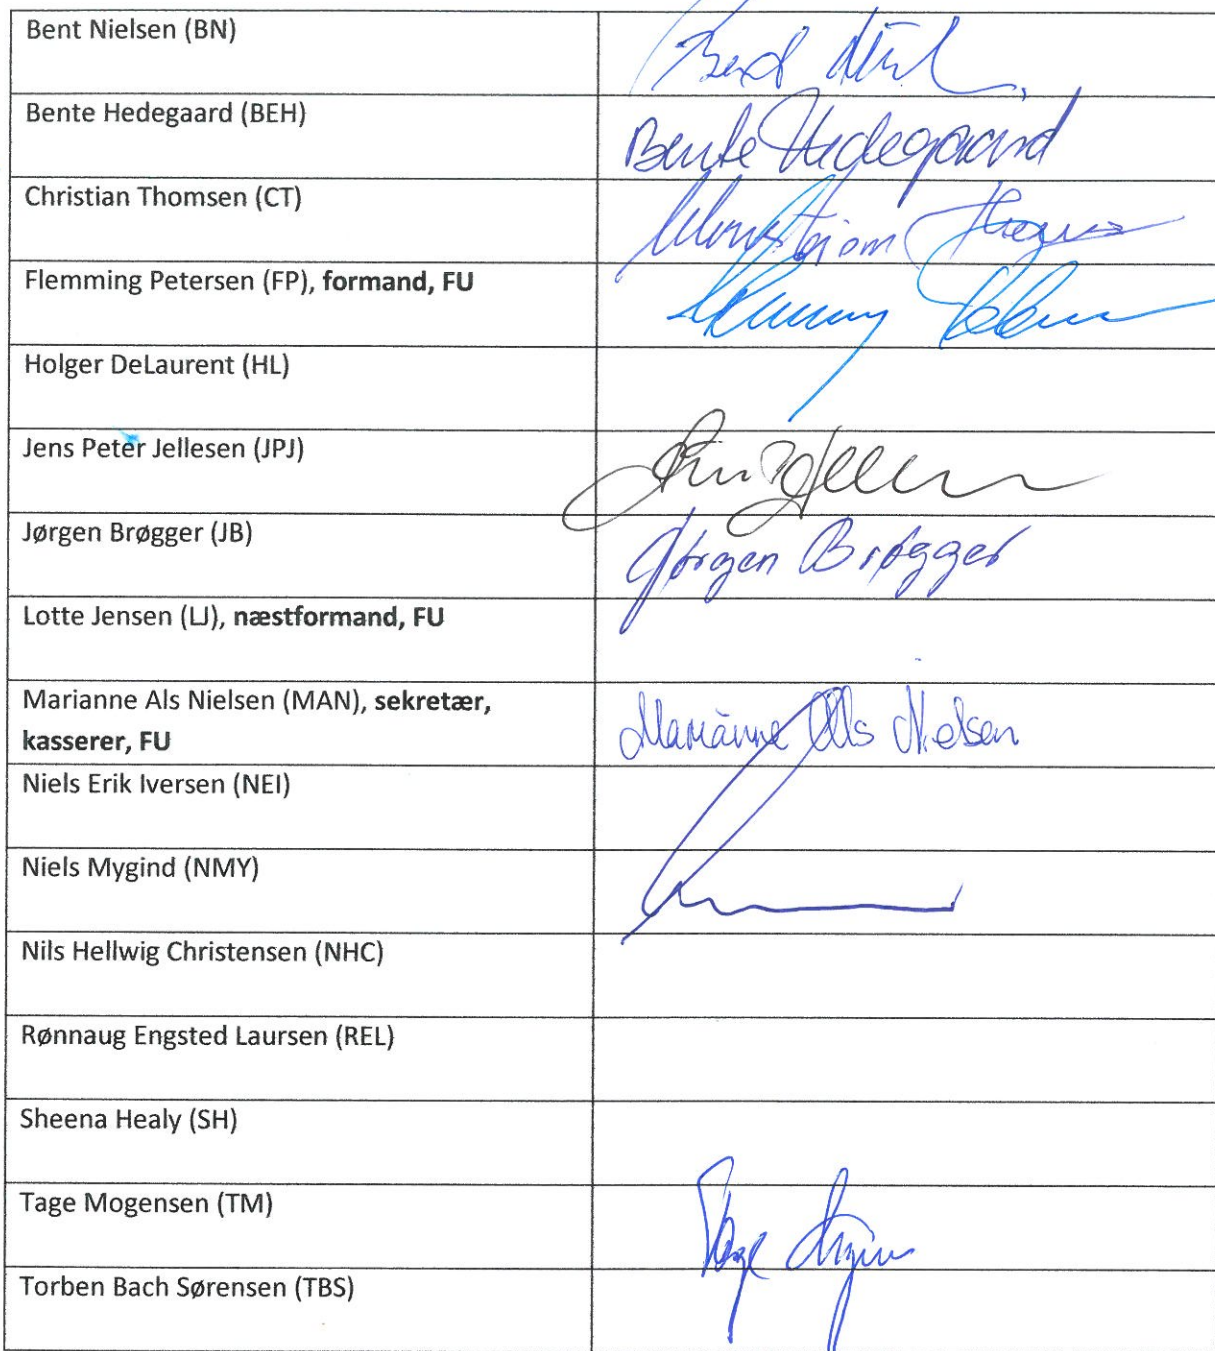 Bent Nielsen (BN)
Bente Hedegaard (BEH)
Bente Hedegaard
Christian Thomsen (CT)
Flemming Petersen (FP), formand, FU
Holger DeLaurent (HL)
Jens Peter Jellesen (JPJ)
Jørgen Brøgger (JB)
Jørgen Brøgger
Lotte Jensen (LJ), næstformand, FU
Marianne Als Nielsen (MAN), sekretær,
kasserer, FU
Marianne Als Nielsen
Niels Erik Iversen (NEI)
Niels Mygind (NMY)
Nils Hellwig Christensen (NHC)
Rønnaug Engsted Laursen (REL)
Sheena Healy (SH)
Tage Mogensen (TM)
Torben Bach Sørensen (TBS)